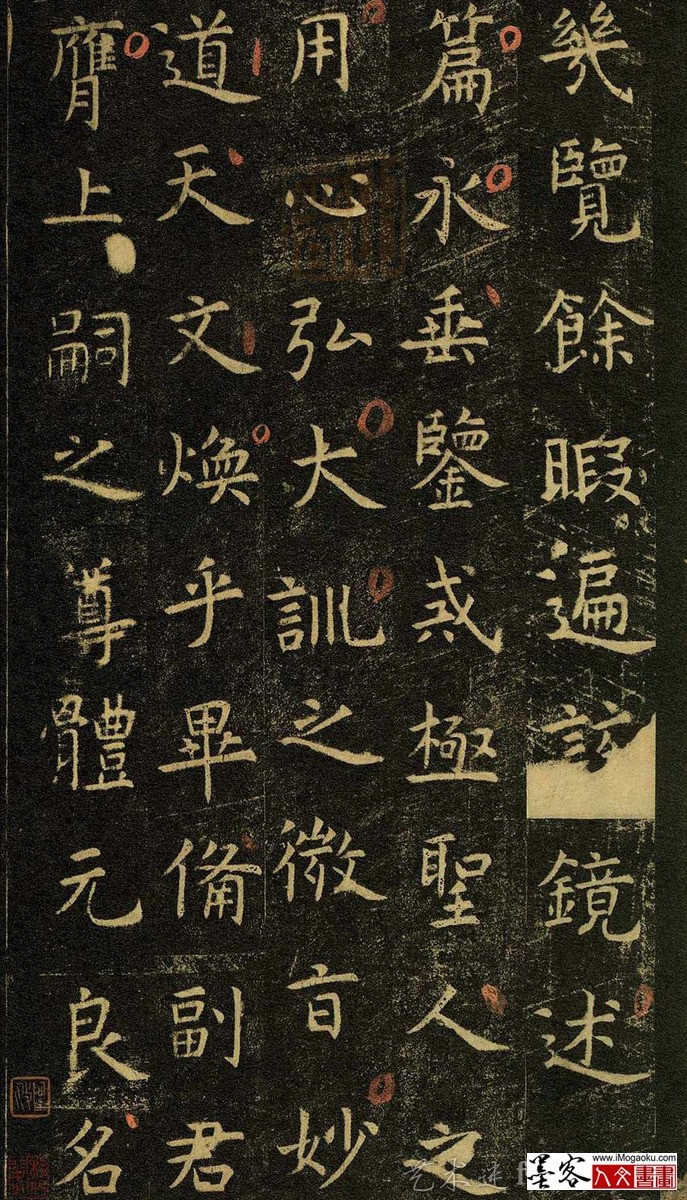 幾覽餘暇遍該鏡述
篇永垂鑒戒極聖人之
用心弘大訓之微旨妙
道天文煥乎畢備副君
膺上嗣之尊體元良名
www.iMogaoku.com
墨客
人文書畫